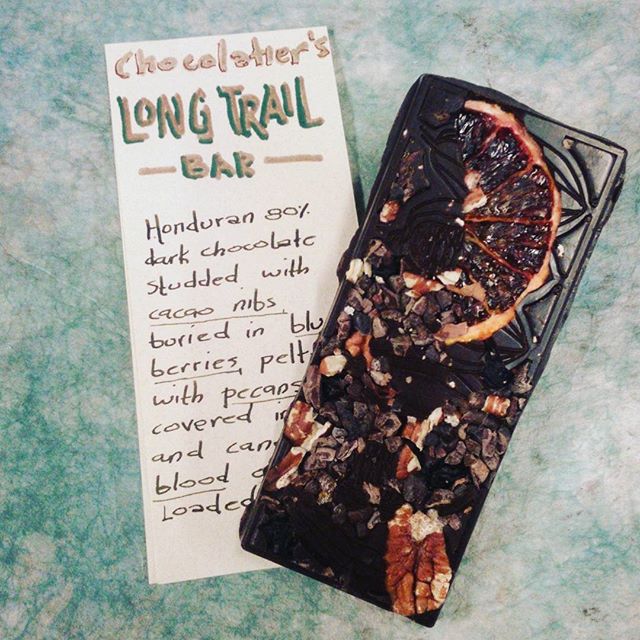 Chocolatier's
LONG TRAIL
— BAR —
Honduran 80%
dark chocolate
studded with
cacao nibs,
buried in
berries,
with pecans
covered
and
blood
Loaded